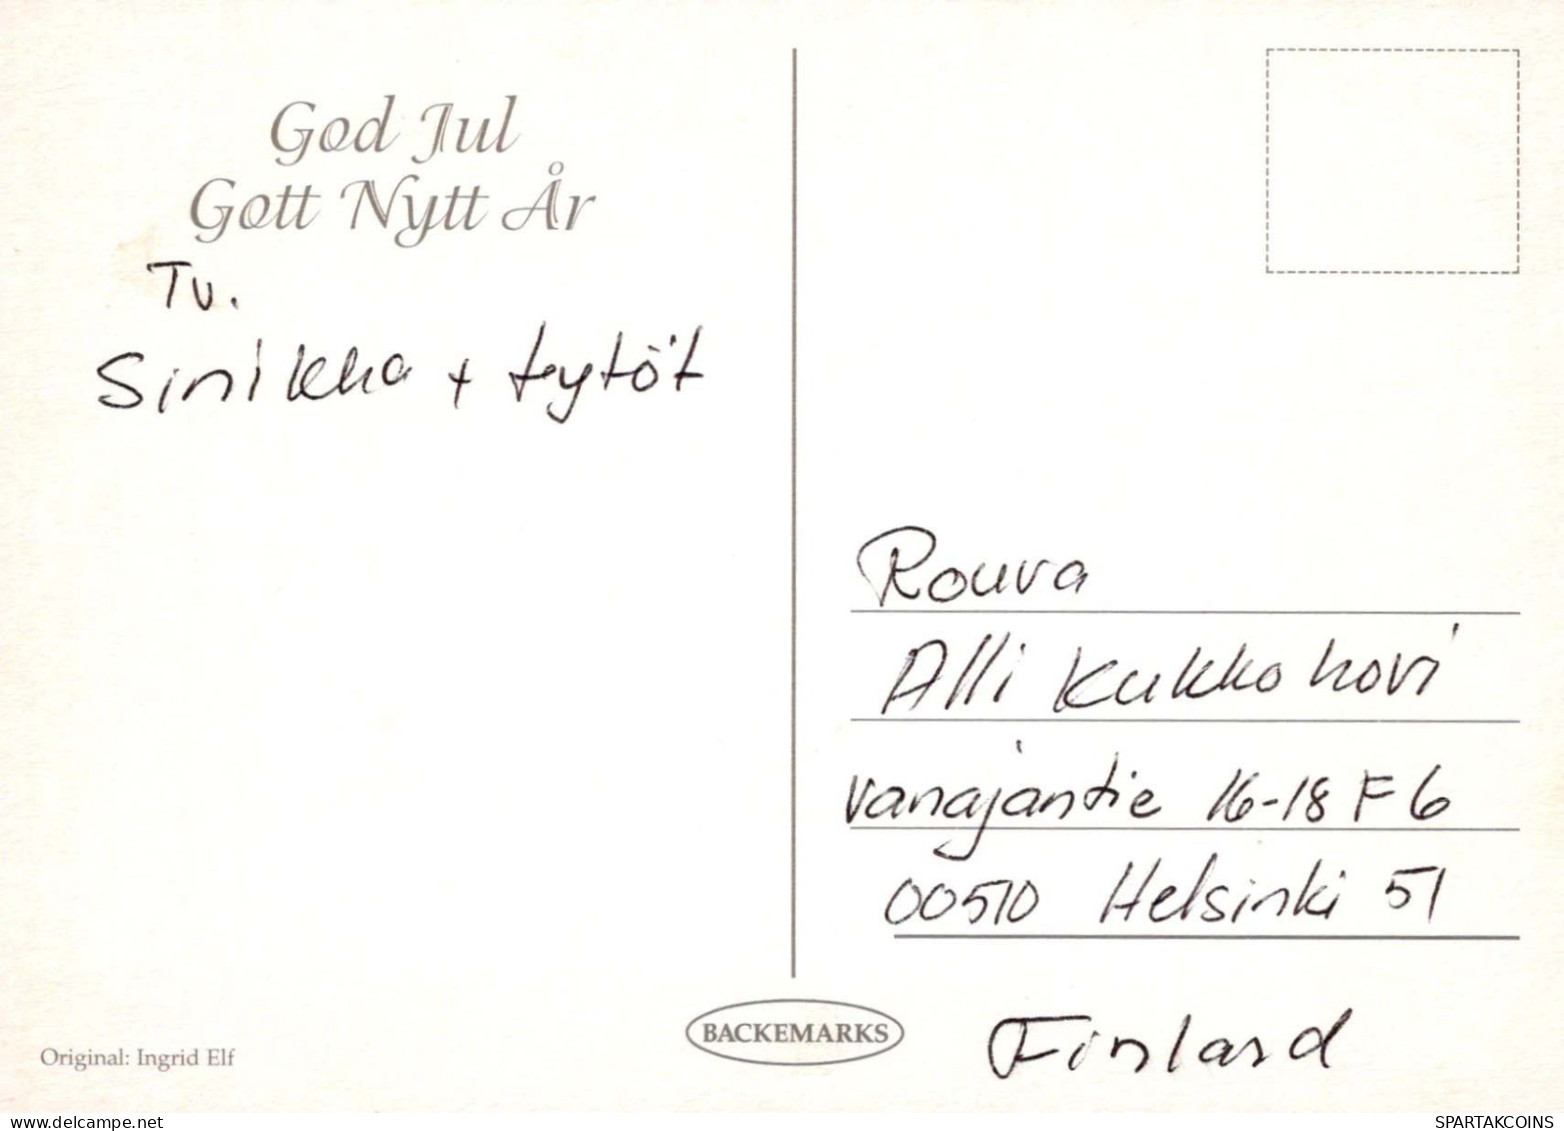 God Jul
Gott Nytt År
Tv.
Sinikka + tytöt
Rouva
Alli Kukkohovi
Vanajantie 16-18 F 6
00510 Helsinki 51
Finland
BACKEMARKS
Original: Ingrid Elf
delcampe.net
SPARTAKCOINS